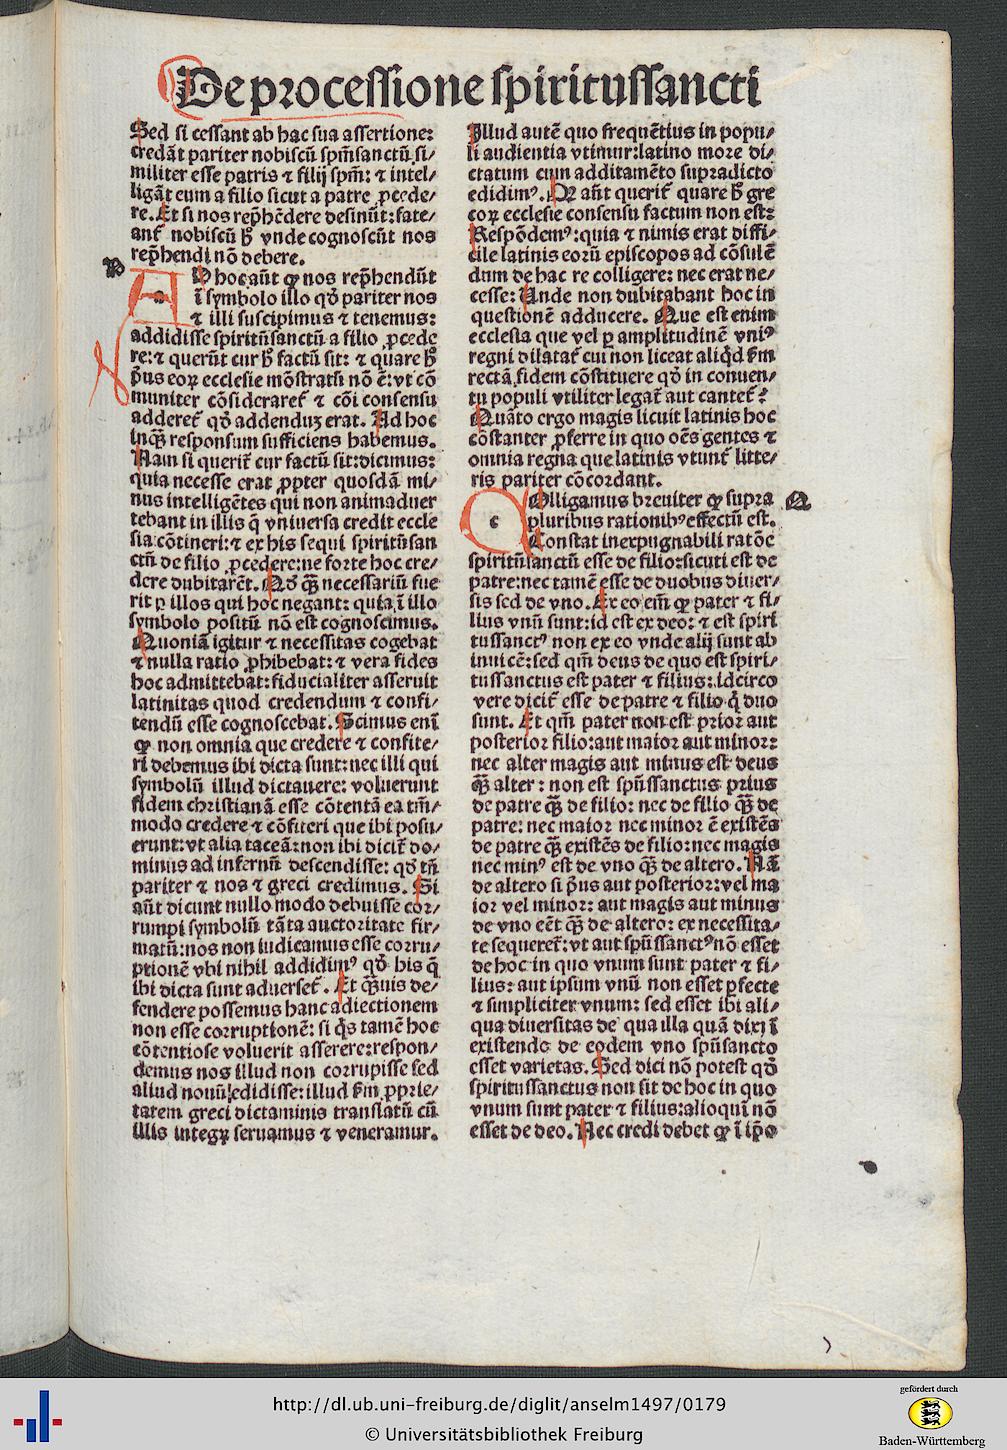 De processione spiritussancti
Sed si cessant ab hac sua assertione:
credāt pariter nobiscū spm̄sanctū si/
militer esse patris ⁊ filij spm̄: ⁊ intel/
ligāt eum a filio sicut a patre ꝓcede/
re. Et si nos rep̄hēdere desinūt: fate/
ant᷑ nobiscū h̄ vnde cognoscūt nos
rep̄hendi nō debere.
P
a
D hoc aūt ꝙ nos rep̄hendūt
ī symbolo illo qd̄ pariter nos
⁊ illi suscipimus ⁊ tenemus:
addidisse spiritūsanctū a filio ꝓcede
re: ⁊ querūt cur h̄ factū sit: ⁊ quare h̄
p̄us eoꝝ ecclesie mōstratū nō ē: vt cō
muniter cōsideraret᷑ ⁊ cōi consensu
adderet᷑ qd̄ addenduꝫ erat. Ad hoc
inqȝ̄ responsum sufficiens habemus.
Nam si querit᷑ cur factū sit: dicimus:
quia necesse erat ꝓpter quosdā mi/
nus intelligētes qui non animaduer
tebant in illis q̄ vniuersa credit eccle
sia cōtineri: ⁊ ex his sequi spiritūsan
ctū de filio ꝓcedere: ne forte hoc cre/
dere dubitarēt. Qd̄ qȝ̄ necessariū fue
rit ꝑ illos qui hoc negant: quia ī illo
symbolo positū nō est cognoscimus.
Quoniā igitur ⁊ necessitas cogebat
⁊ nulla ratio ꝓhibebat: ⁊ vera fides
hoc admittebat: fiducialiter asseruit
latinitas quod credendum ⁊ confi/
tendū esse cognoscebat. Scimus enī
ꝙ non omnia que credere ⁊ confite/
ri debemus ibi dicta sunt: nec illi qui
symbolū illud dictauere: voluerunt
fidem christianā esse cōtentā ea tm̄/
modo credere ⁊ cōfiteri que ibi posu/
erunt: vt alia taceā: non ibi dicit᷑ do/
minus ad infernū descendisse: qd̄ tn̄
pariter ⁊ nos ⁊ greci credimus. Si
aūt dicunt nullo modo debuisse cor/
rumpi symbolū tāta auctoritate fir/
matū: nos non iudicamus esse corru/
ptionē vbi nihil addidimꝰ qd̄ his q̄
ibi dicta sunt aduerset᷑. Et qȝ̄uis de/
fendere possemus hanc adiectionem
non esse corruptionē: si q̄s tamē hoc
cōtentiose voluerit asserere: respon/
demus nos illud non corrupisse sed
aliud nouū edidisse: illud ẜm ꝓprie/
tatem greci dictaminis translatū cū
illis integꝝ seruamus ⁊ veneramur.
Illud autē quo frequētius in popu/
li audientia vtimur: latino more di/
ctatum cum additamēto supradicto
edidimꝰ. Qd̄ aūt querit᷑ quare h̄ gre
coꝝ ecclesie consensu factum non est:
Respōdemꝰ: quia ⁊ nimis erat diffi/
cile latinis eorū episcopos ad cōsulē
dum de hac re colligere: nec erat ne/
cesse: Unde non dubitabant hoc in
questionē adducere. Que est enim
ecclesia que vel ꝑ amplitudinē vniꝰ
regni dilatat᷑ cui non liceat aliq̄d ẜm
rectā fidem cōstituere qd̄ in conuen/
tu populi vtiliter legat᷑ aut cantet᷑?
Quāto ergo magis licuit latinis hoc
cōstanter ꝓferre in quo oēs gentes ⁊
omnia regna que latinis vtunt᷑ litte/
ris pariter cōcordant.
c
Olligamus breuiter ꝙ supra
Q
pluribus rationibꝰ effectū est.
Constat inexpugnabili ratōe
spiritūsanctū esse de filio: sicuti est de
patre: nec tamē esse de duobus diuer/
sis sed de vno. Ex eo em̄ ꝙ pater ⁊ fi/
lius vnū sunt: id est ex deo: ⁊ est spiri
tussanctꝰ non ex eo vnde alij sunt ab
inuicē: sed qm̄ deus de quo est spiri/
tussanctus est pater ⁊ filius: idcirco
vere dicit᷑ esse de patre ⁊ filio q̄ duo
sunt. Et qm̄ pater non est prior aut
posterior filio: aut maior aut minor:
nec alter magis aut minus est deus
qȝ̄ alter: non est spūssanctus prius
de patre qȝ̄ de filio: nec de filio qȝ̄ de
patre: nec maior nec minor ē existēs
de patre qȝ̄ existēs de filio: nec magis
nec minꝰ est de vno qȝ̄ de altero. Nā
de altero si p̄us aut posterior: vel ma
ior vel minor: aut magis aut minus
de vno eēt qȝ̄ de altero: ex necessita/
te sequeret᷑: vt aut spūssanctꝰ nō esset
de hoc in quo vnum sunt pater ⁊ fi/
lius: aut ipsum vnū non esset ꝑfecte
⁊ simpliciter vnum: sed esset ibi ali/
qua diuersitas de qua illa quā dixi ī
existendo de eodem vno spūsancto
esset varietas. Sed dici nō potest qd̄
spiritussanctus non sit de hoc in quo
vnum sunt pater ⁊ filius: alioquī nō
esset de deo. Nec credi debet ꝙ ī ip̄o
http://dl.ub.uni-freiburg.de/diglit/anselm1497/0179
© Universitätsbibliothek Freiburg
gefördert durch
Baden-Württemberg